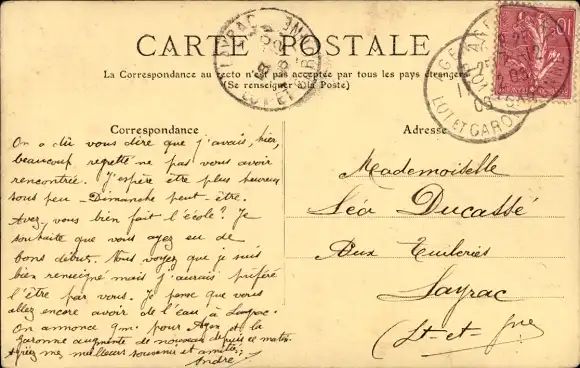 CARTE POSTALE
La Correspondance au recto n'est pas acceptée par tous les pays étrangers
(Se renseigner à la Poste)
Correspondance
On a dû vous dire que j'avais, hier,
beaucoup regretté ne pas vous avoir
rencontrée. J'espère être plus heureux
sous peu - Dimanche peut-être.
Avez-vous bien fait l'école? Je
souhaite que vous ayez eu de
bons débuts. Vous voyez que je suis
bien renseigné mais j'aurais préféré
l'être par vous. Je pense que vous
allez encore avoir de l'eau à Layrac.
On annonce 9m. pour Agen et la
Garonne augmente de nouveau depuis ce matin.
Agréez mes meilleurs souvenirs et amitiés;
André
Adresse
Mademoiselle
Léo Ducassé
Aux Tuileries
Layrac
(Lt-et-Gne)
LAYRAC
LOT ET GARONNE
LOT ET GARONNE
10